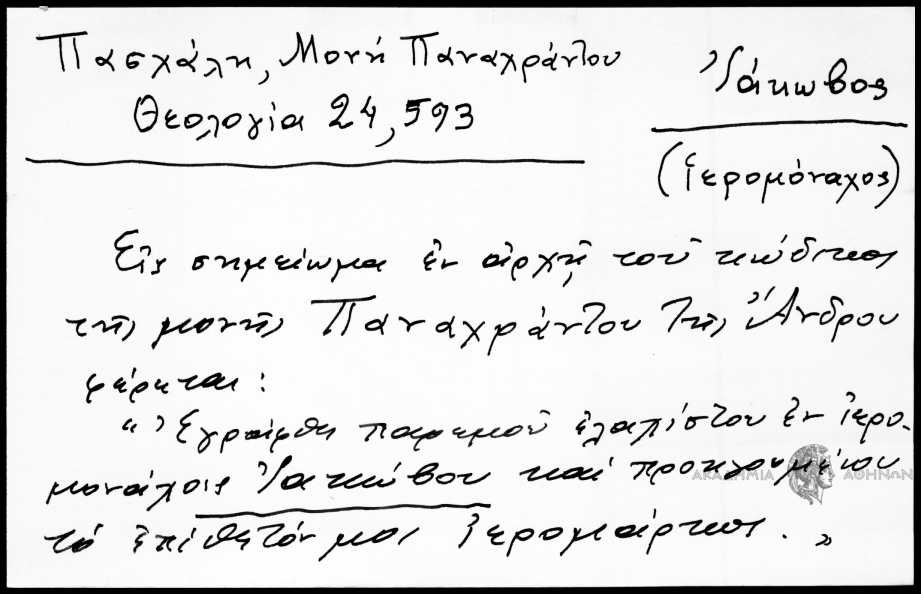 Πασχάλη, Μονή Παναχράντου
Θεολογία 24, 593
Ἰάκωβος
(ἱερομόναχος)
Εἰς σημείωμα ἐν ἀρχῇ τοῦ κώδικος
τῆς μονῆς Παναχράντου τῆς Ἄνδρου
φέρεται:
"Ἐγράφθη παρεμοῦ ἐλαχίστου ἐν ἱερο-
μονάχοις Ἰακώβου καί προηγουμένου
τό ἐπίθετόν μου
ΑΚΑΔΗΜΙΑ ΑΘΗΝΩΝ